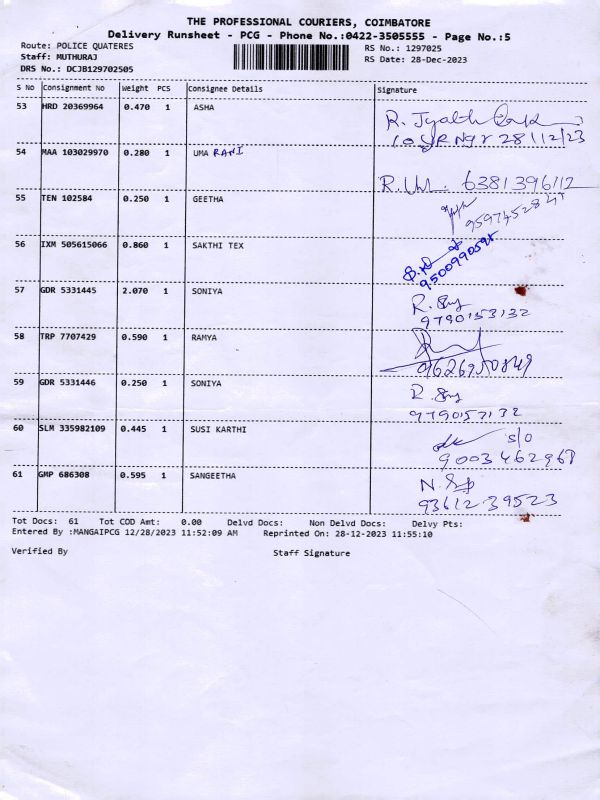 THE PROFESSIONAL COURIERS, COIMBATORE
Delivery Runsheet - PCG - Phone No.:0422-3505555 - Page No.:5
Route: POLICE QUATERES RS No.: 1297025
Staff: MUTHURAJ RS Date: 28-Dec-2023
DRS No.: DCJB129702505
S No Consignment No Weight PCS Consignee Details Signature
53 HRD 20369964 0.470 1 ASHA
R. Jyothi
28/12/23
54 MAA 103029970 0.280 1 UMA RANI
R. 6381396112
55 TEN 102584 0.250 1 GEETHA
56 IXM 505615066 0.860 1 SAKTHI TEX
57 GDR 5331445 2.070 1 SONIYA
R.
9790153132
58 TRP 7707429 0.590 1 RAMYA
59 GDR 5331446 0.250 1 SONIYA
R.
9790153132
60 SLM 335982109 0.445 1 SUSI KARTHI
s/o
61 GMP 686308 0.595 1 SANGEETHA
N.
93612 39523
Tot Docs: 61 Tot COD Amt: 0.00 Delvd Docs: Non Delvd Docs: Delvy Pts:
Entered By :MANGAIPCG 12/28/2023 11:52:09 AM Reprinted On: 28-12-2023 11:55:10
Verified By Staff Signature